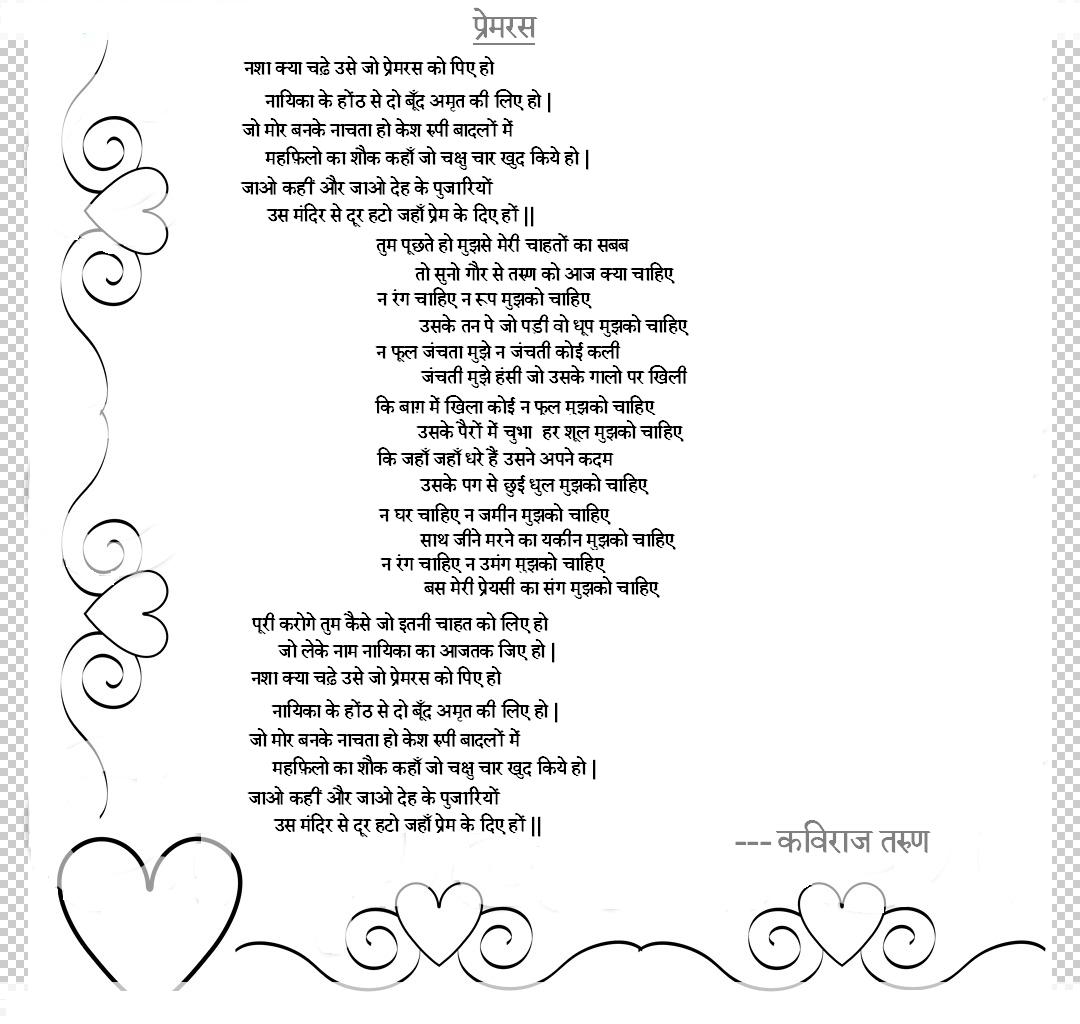 प्रेमरस
नशा क्या चढ़े उसे जो प्रेमरस को पिए हो
नायिका के होंठ से दो बूँद अमृत की लिए हो |
जो मोर बनके नाचता हो केश रुपी बादलों में
महफ़िलो का शौक कहाँ जो चक्षु चार खुद किये हो |
जाओ कहीं और जाओ देह के पुजारियों
उस मंदिर से दूर हटो जहाँ प्रेम के दिए हों ||
तुम पूछते हो मुझसे मेरी चाहतों का सबब
तो सुनो गौर से तरुण को आज क्या चाहिए
न रंग चाहिए न रूप मुझको चाहिए
उसके तन पे जो पड़ी वो धूप मुझको चाहिए
न फूल जंचता मुझे न जंचती कोई कली
जंचती मुझे हंसी जो उसके गालो पर खिली
कि बाग़ में खिला कोई न फूल मुझको चाहिए
उसके पैरों में चुभा हर शूल मुझको चाहिए
कि जहाँ जहाँ धरे हैं उसने अपने कदम
उसके पग से छुई धुल मुझको चाहिए
न घर चाहिए न जमीन मुझको चाहिए
साथ जीने मरने का यकीन मुझको चाहिए
न रंग चाहिए न उमंग मुझको चाहिए
बस मेरी प्रेयसी का संग मुझको चाहिए
पूरी करोगे तुम कैसे जो इतनी चाहत को लिए हो
जो लेके नाम नायिका का आजतक जिए हो |
नशा क्या चढ़े उसे जो प्रेमरस को पिए हो
नायिका के होंठ से दो बूँद अमृत की लिए हो |
जो मोर बनके नाचता हो केश रुपी बादलों में
महफ़िलो का शौक कहाँ जो चक्षु चार खुद किये हो |
जाओ कहीं और जाओ देह के पुजारियों
उस मंदिर से दूर हटो जहाँ प्रेम के दिए हों ||
--- कविराज तरुण